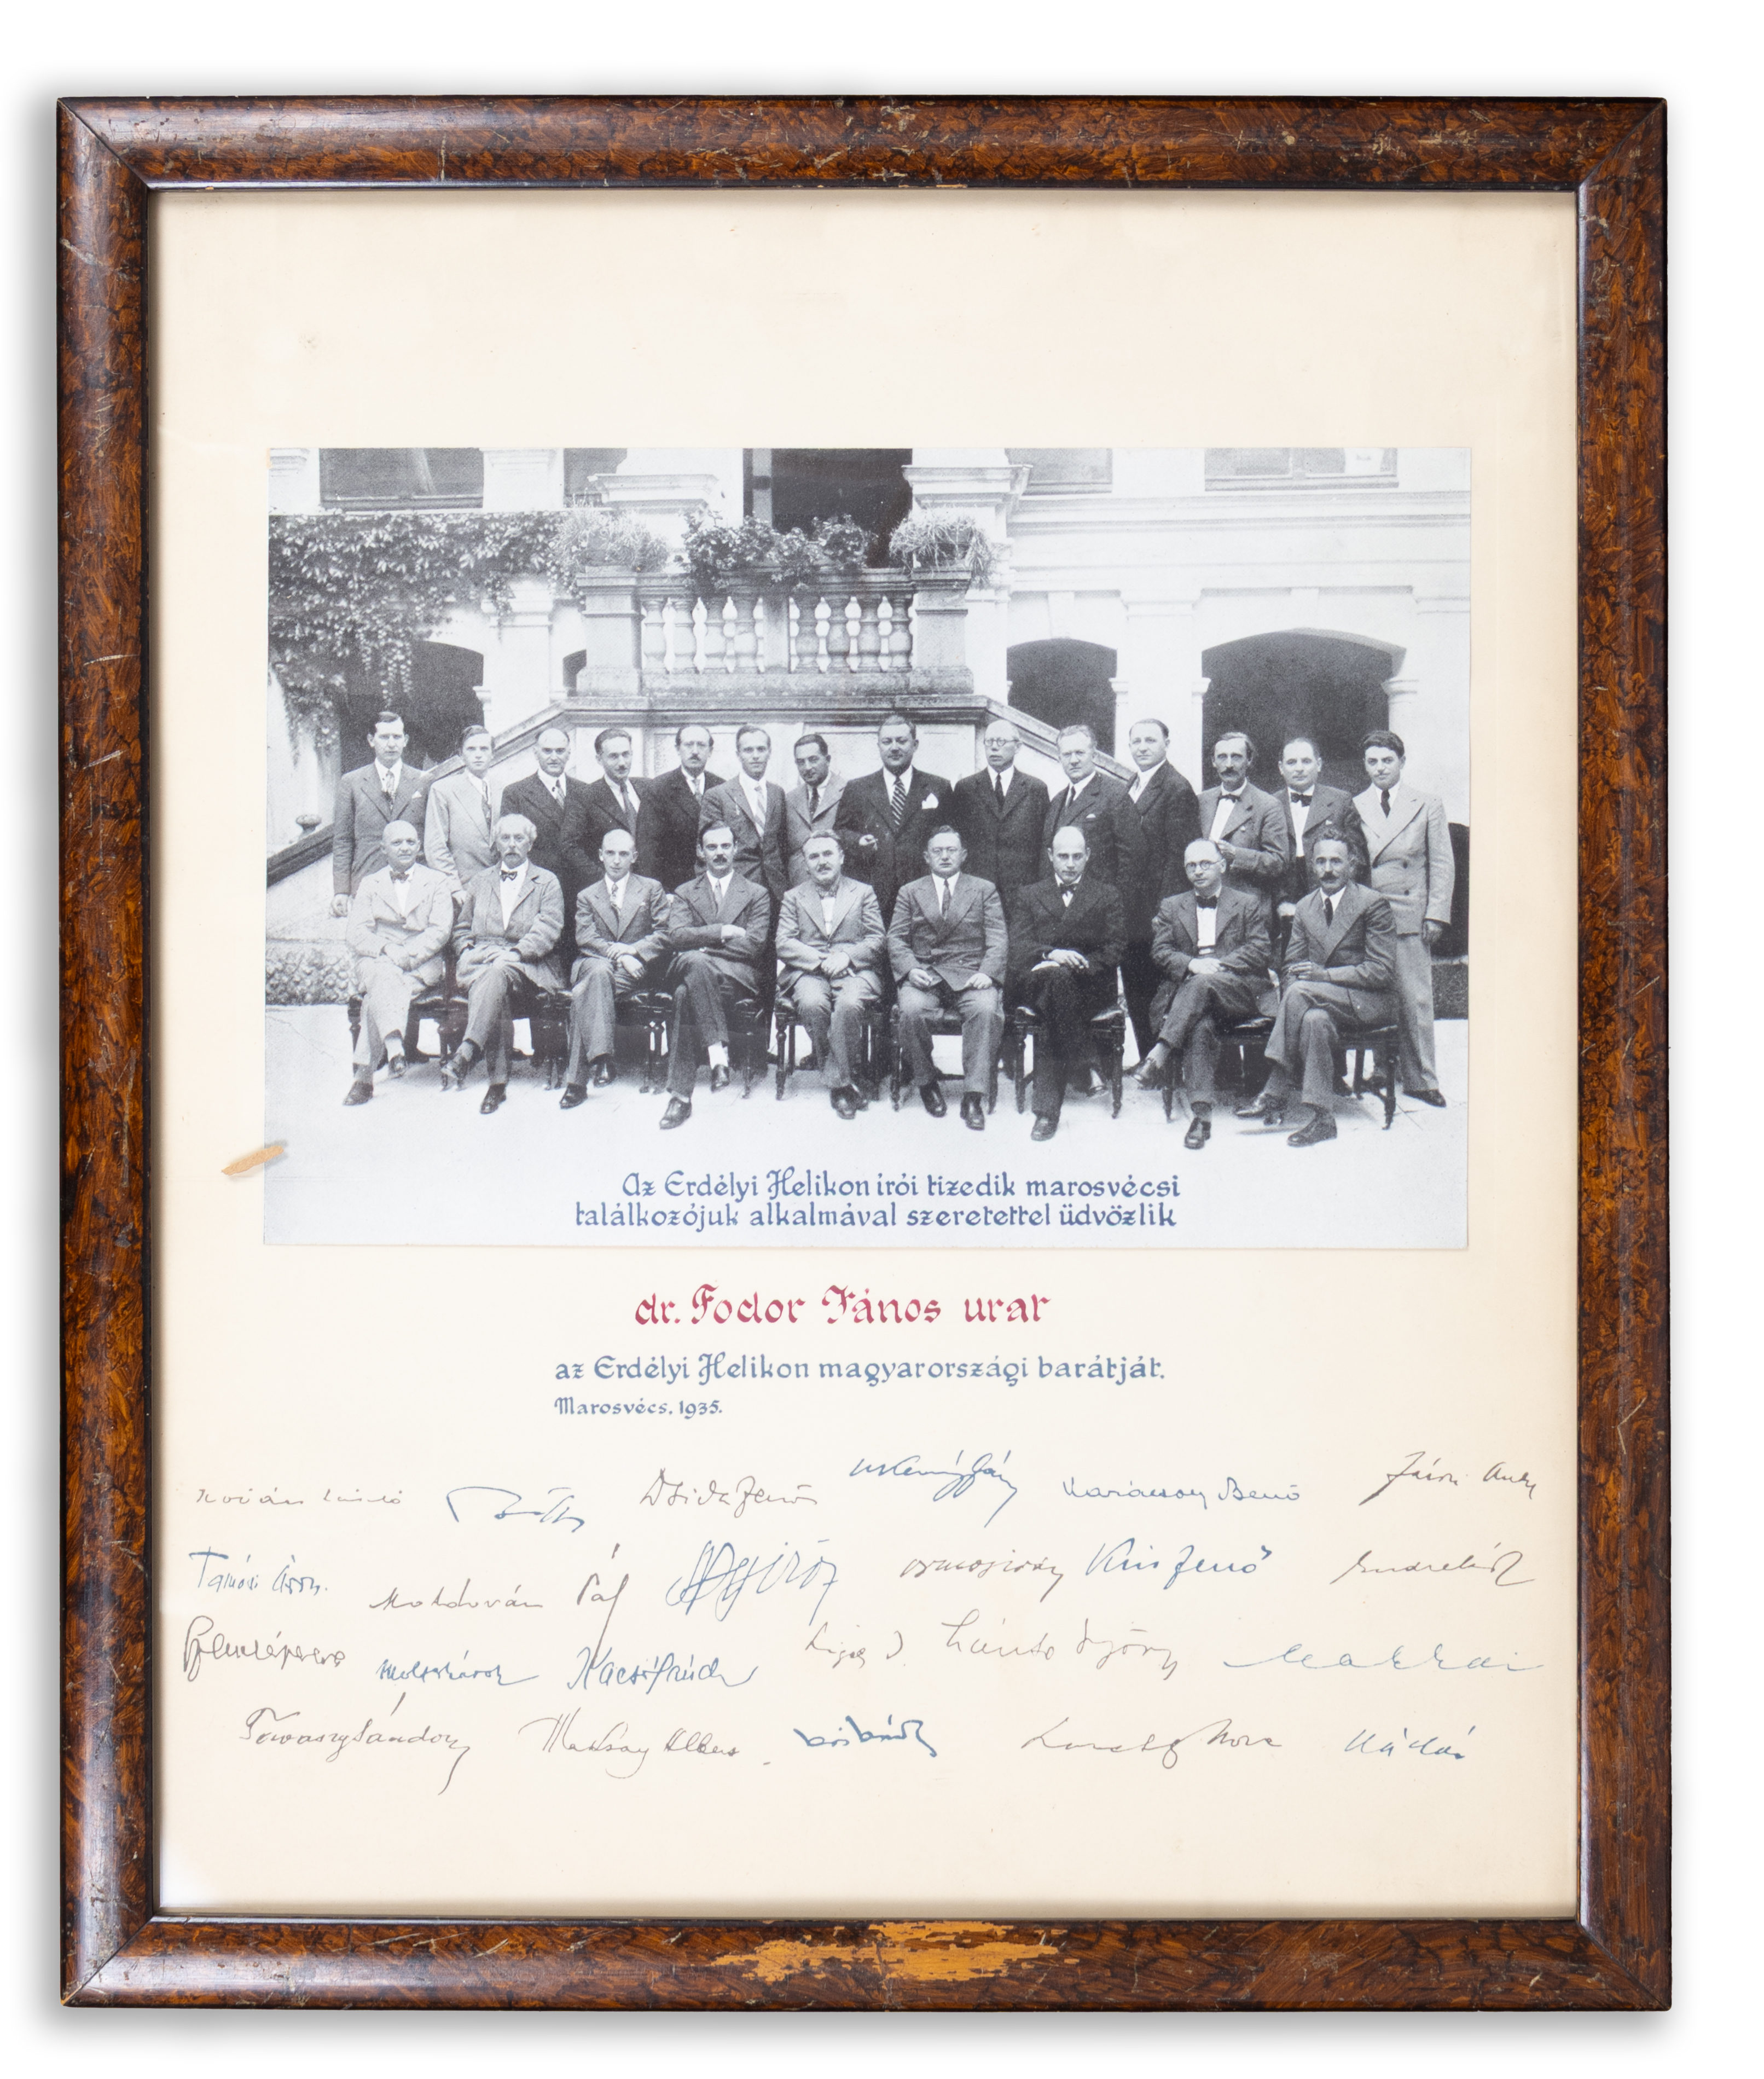 Az Erdélyi Helikon írói tizedik marosvécsi
találkozójuk alkalmával szeretettel üdvözlik
dr. Fodor János urat
az Erdélyi Helikon magyarországi barátját.
Marosvécs, 1935.
Kovács László Dsida Jenő Kemény János Karácsony Benő
Tamási Áron Moldován Pál Kiss Jenő Endre Károly
Szentimrei Molter Károly Kacsó Sándor Ligeti Szántó György Makkai
Tavaszy Sándor Maksay Albert Kós Károly Kádár